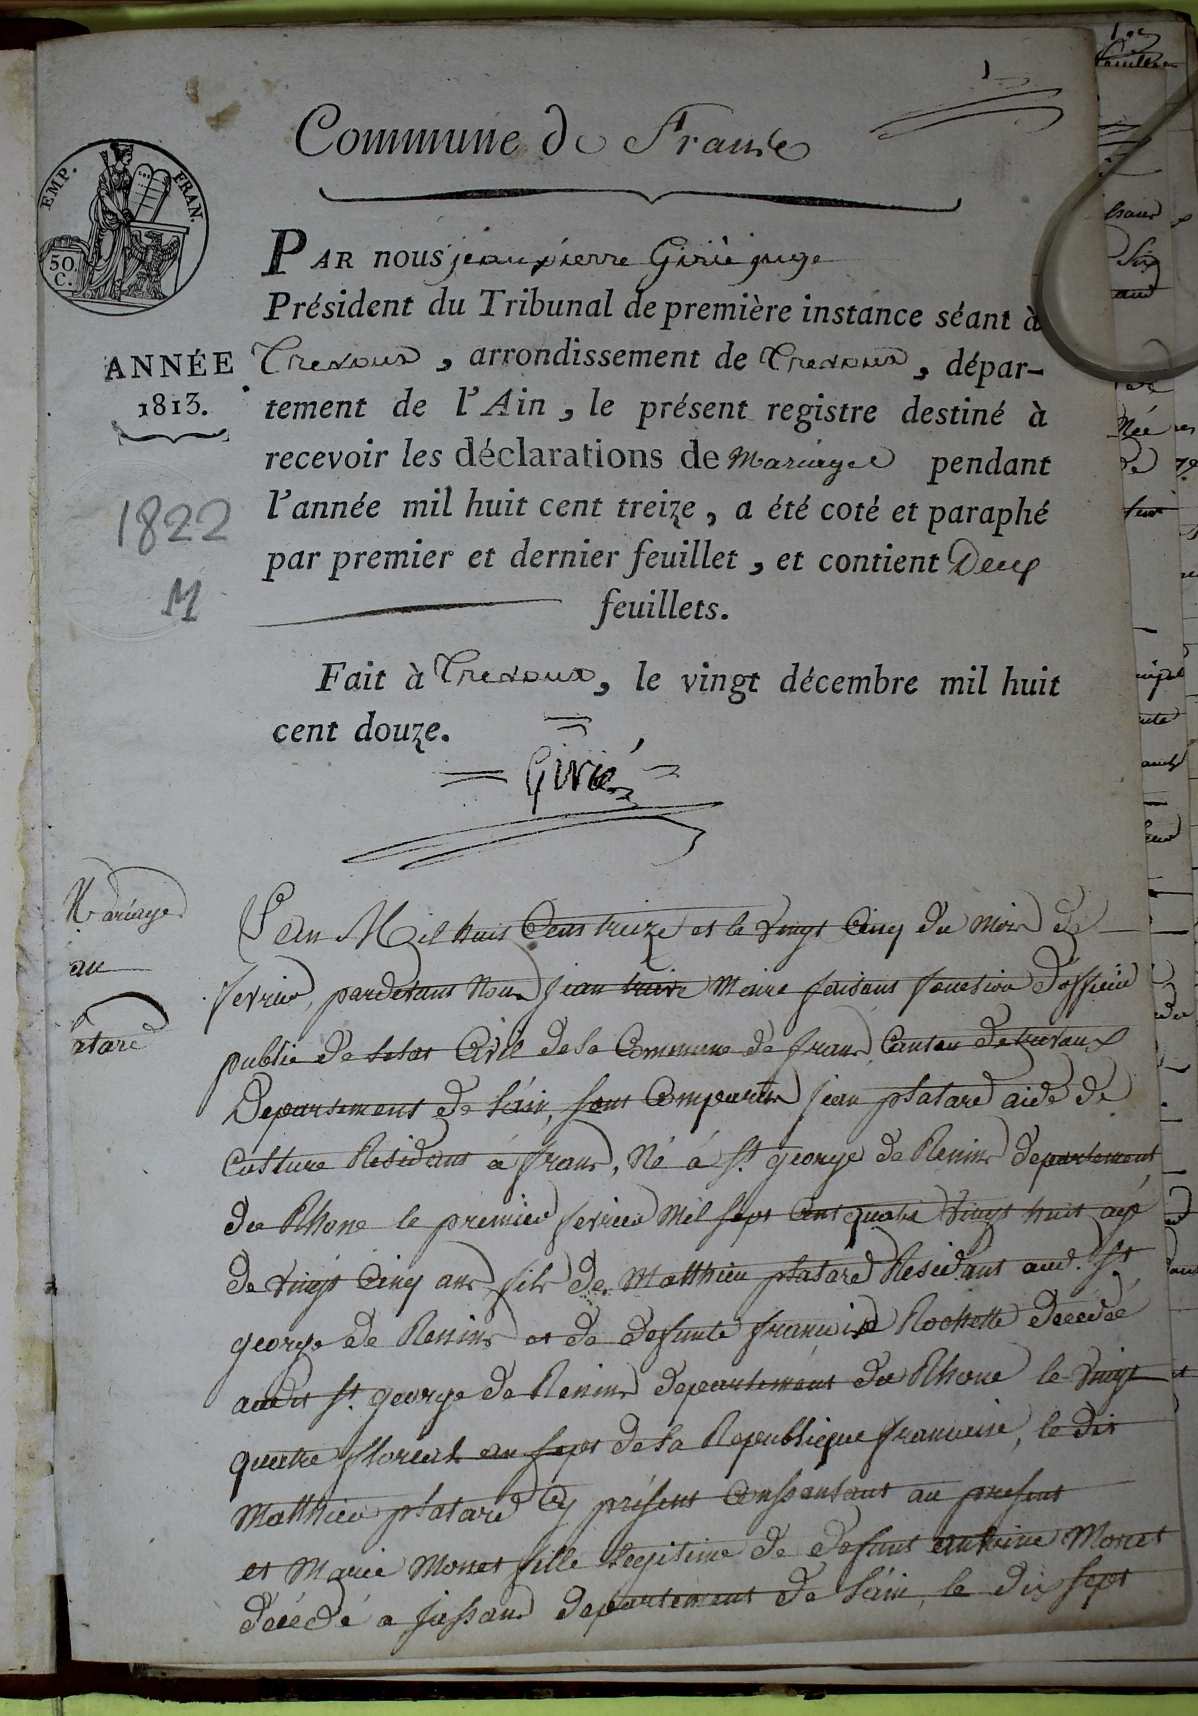 1
Commune de Franse
EMP. FRAN.
50. C.
PAR nous jean pierre Girié juge
Président du Tribunal de première instance séant à
ANNÉE 1813.
Trevoux, arrondissement de Trevoux, dépar-
tement de l'Ain, le présent registre destiné à
recevoir les déclarations de Mariage pendant
l'année mil huit cent treize, a été coté et paraphé
par premier et dernier feuillet, et contient Deux
feuillets.
1822
M
Fait à Trevoux, le vingt décembre mil huit
cent douze.
Girié
Mariage
au
L'an Mil huit Cent treize et le vingt Cinq du mois de
fevrier, pardevant Nous jean Maire faisant fonction d'officier
public de letat Civil de la Commune de frans, Canton de trevoux
Departement de l'ain, sont Comparus jean platard aide de
Culture Residant à frans, Né à St. george de Renins departement
du Rhone le premier fevrier Mil sept Cent quatre vingt huit agé
de vingt Cinq ans fils de Matthieu platard Residant aud. St
george de Renins et de defunte francoise Rochette decedée
audit St. george de Renins departement du Rhone le vingt
quatre floreal an sept de la Republique francaise, le dit
Matthieu platard Cy présent Conssentant au present
et Marie Monet fille Legitime de defunt antoine Monet
décédé a jassans departement de l'ain, le dix sept